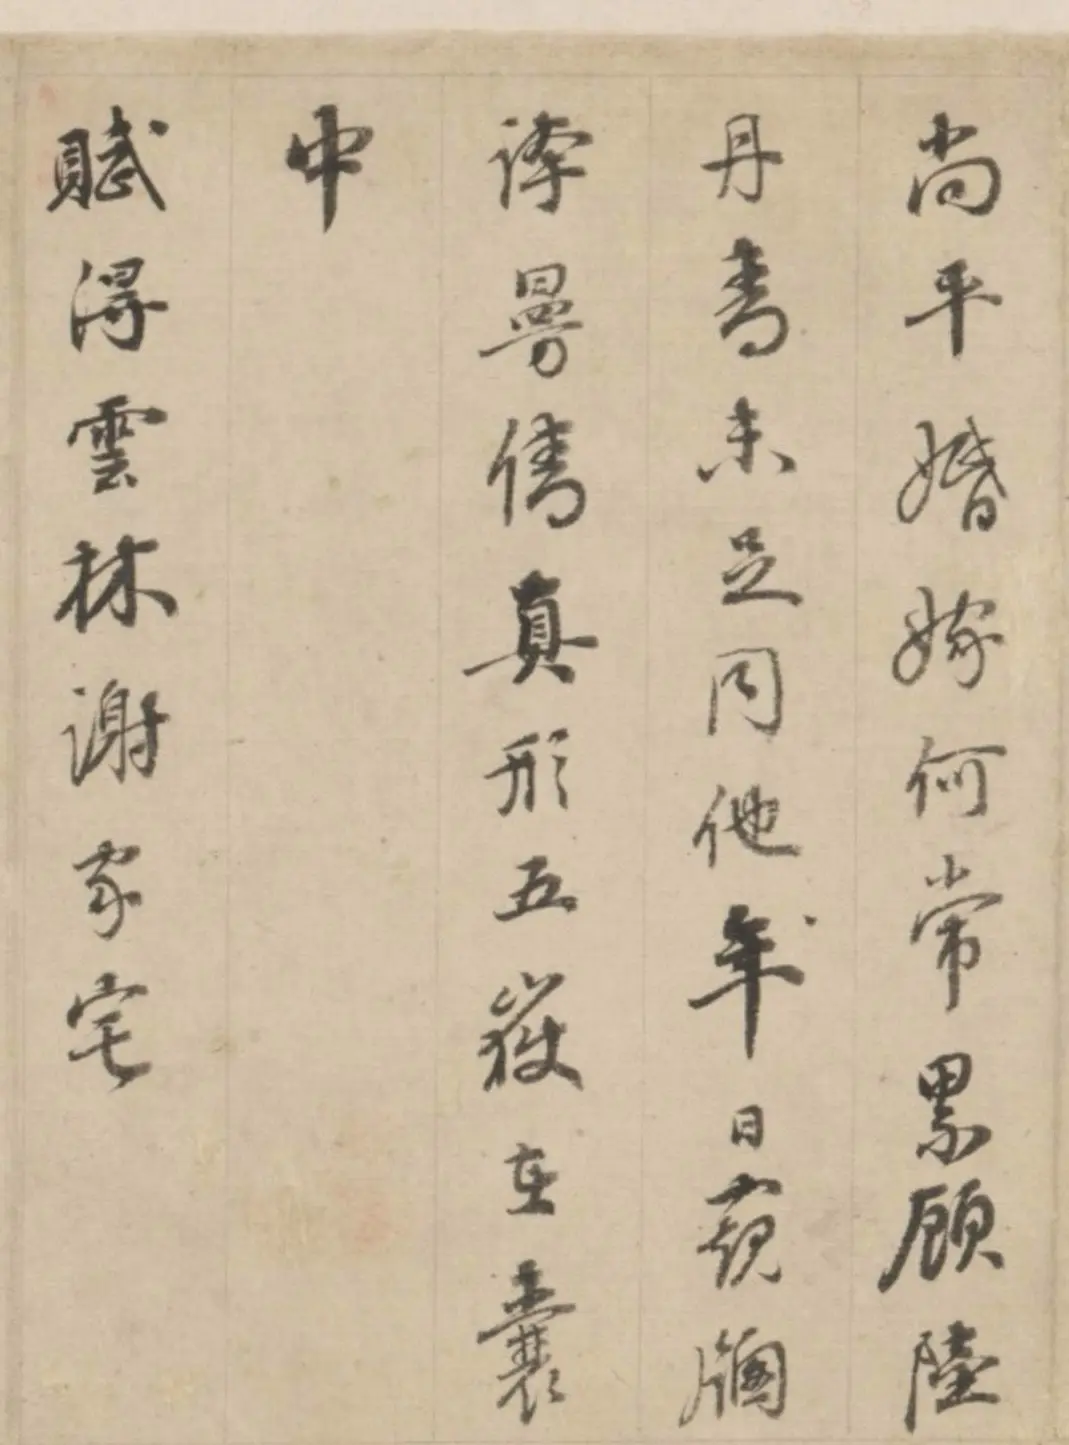 尚平婚嫁何常累顧陸
丹青未足同他年日窺牖
誇曼倩真形五嶽在囊
中
賦得雲林謝家宅